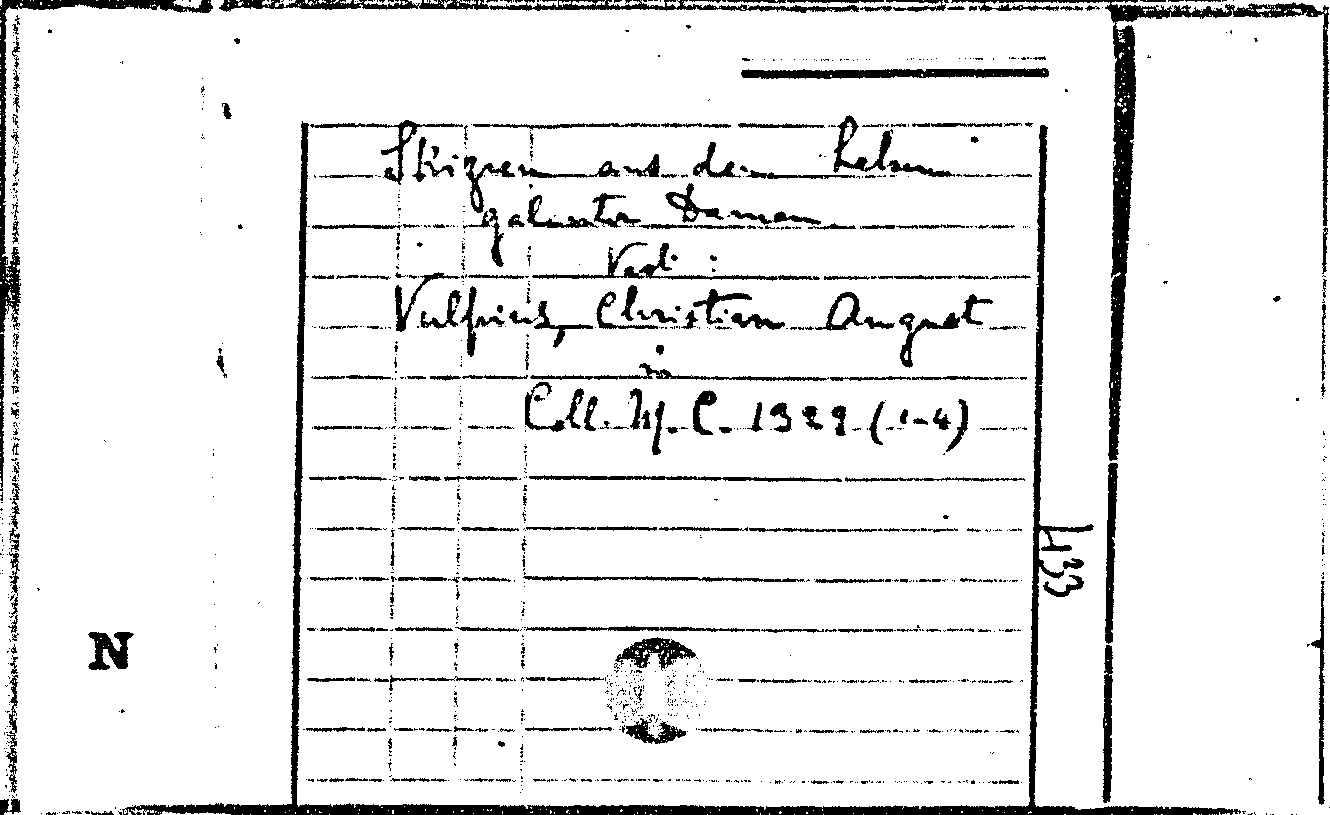 Skizzen aus dem Leben
galanter Damen
Vid :
Vulpius, Christian August
in
Coll. W. C. 1322 (1-4)
433
N